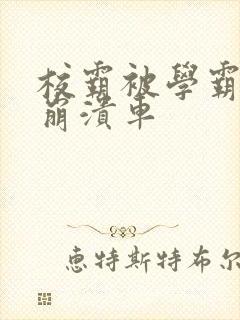 校霸被學霸
崩潰車
惠特斯特布尔